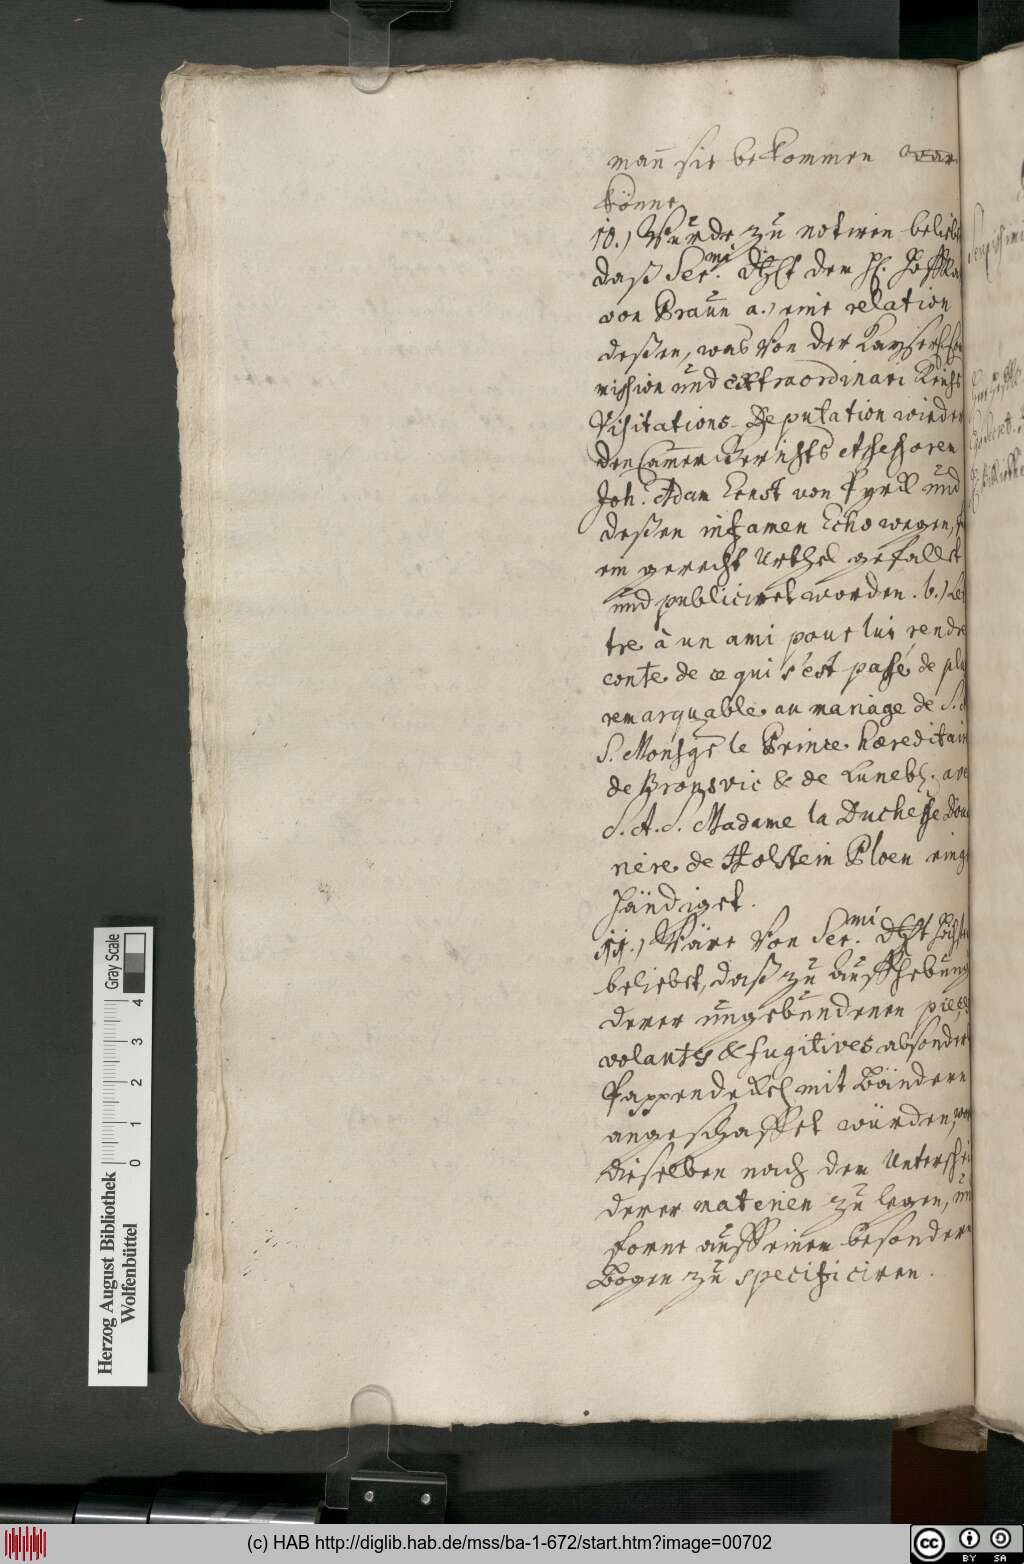 mañ sie bekommen
könne
10.) Wurde zu notiren beliebt
daß Ser.mi dhlt dem H. Hoffra
von Praun a.) eine relation
deßen, was von der Kayserl. Co
mission und extraordinari Reichs
Visitations-Deputation wieder
den Camer Gerichts Assessoren
Joh. Adam Ernst von Pyrck und
deßen infamen Echo wegen, f
ein gerecht Urthel gefallet
und publiciret worden. b.) Let
tre à un ami pour lui rendre
conte de ce qui s'est passé de plu
remarquable au mariage de S. A
S. Monsgr le Prince hæreditair
de Bronsvic & de Luneb. ave
S. A. S. Madame la Duchesse Douai
riére de Holstein Ploen einge
händiget.
11.) Wäre von Ser.mi dhlt höchst
beliebet, daß zu auffhebung
derer ungebundenen pieces
volantes & fugitives absonderl
Pappendeckel mit Bändern
angeschaffet würden, wor
dieselben nach dem Unterschei
derer materien zu legen, un
forne auff einem besondern
Bogen zu specificiren.
Herzog August Bibliothek
Wolfenbüttel
0 1 2 3 4
Gray Scale
(c) HAB http://diglib.hab.de/mss/ba-1-672/start.htm?image=00702
cc BY SA